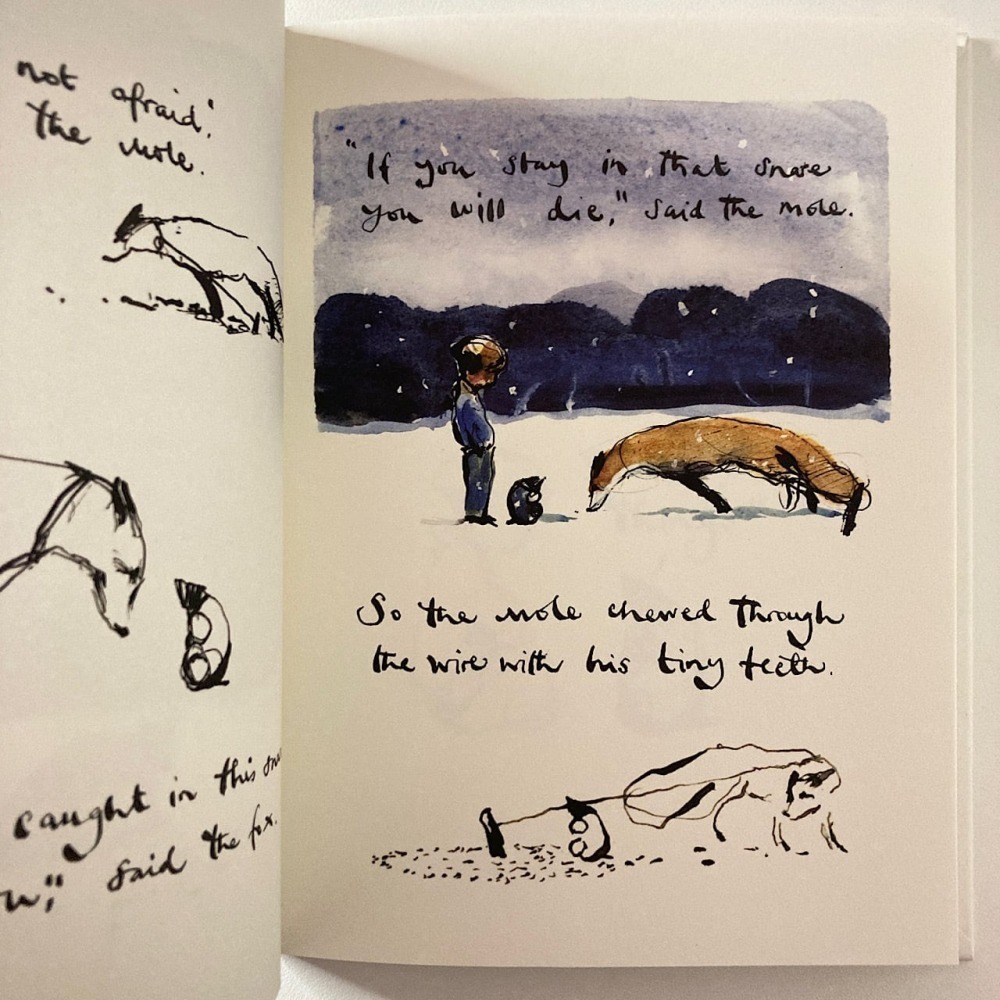 not afraid,'
the mole.
caught in this
said the fox.
"If you stay in that snare
you will die," said the mole.
So the mole chewed through
the wire with his tiny teeth.